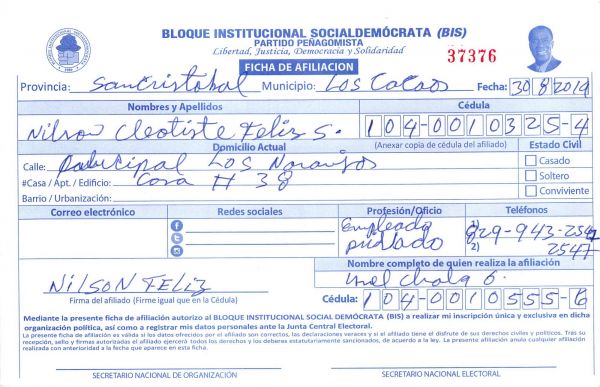 BLOQUE INSTITUCIONAL SOCIALDEMÓCRATA (BIS)
PARTIDO PEÑAGOMISTA
Libertad, Justicia, Democracia y Solidaridad
37376
FICHA DE AFILIACION
Provincia: San Cristobal Municipio: Los Cacaos Fecha: 30/8/2019
Nombres y Apellidos Cédula
Nilson Cleotiste Feliz S. 104-0010325-4
Domicilio Actual (Anexar copia de cédula del afiliado) Estado Civil
Calle: Principal Los Naranjos Casado
#Casa / Apt. / Edificio: Casa # 38 Soltero
Barrio / Urbanización: Conviviente
Correo electrónico Redes sociales Profesión/Oficio Teléfonos
Empleado 1) 829-943-2547
privado 2) 2547
Nombre completo de quien realiza la afiliación
NILSON FELIZ
Firma del afiliado (Firme igual que en la Cédula) Cédula: 104-0010555-6
Mediante la presente ficha de afiliación autorizo al BLOQUE INSTITUCIONAL SOCIAL DEMÓCRATA (BIS) a realizar mi inscripción única y exclusiva en dicha
organización política, así como a registrar mis datos personales ante la Junta Central Electoral.
La presente ficha de afiliación es válida si los datos ofrecidos por el afiliado son correctos, las declaraciones veraces y si el afiliado tiene el disfrute de sus derechos civiles y políticos. Tras su
recepción, sello y firmas autorizadas el afiliado ejercerá todos los derechos y los deberes estatutariamente sancionados, de acuerdo a la ley. La presente afiliación anula cualquier afiliación
realizada con anterioridad a la fecha que aparece en esta ficha.
SECRETARIO NACIONAL DE ORGANIZACIÓN SECRETARIO NACIONAL ELECTORAL